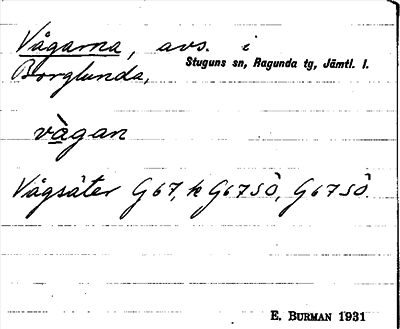 Vågarna, avs. i
Stuguns sn, Ragunda tg, Jämtl. l.
Borglunda,
vàgan
Vågsäter G67, k G67SÖ, G67SÖ.
E. BURMAN 1931